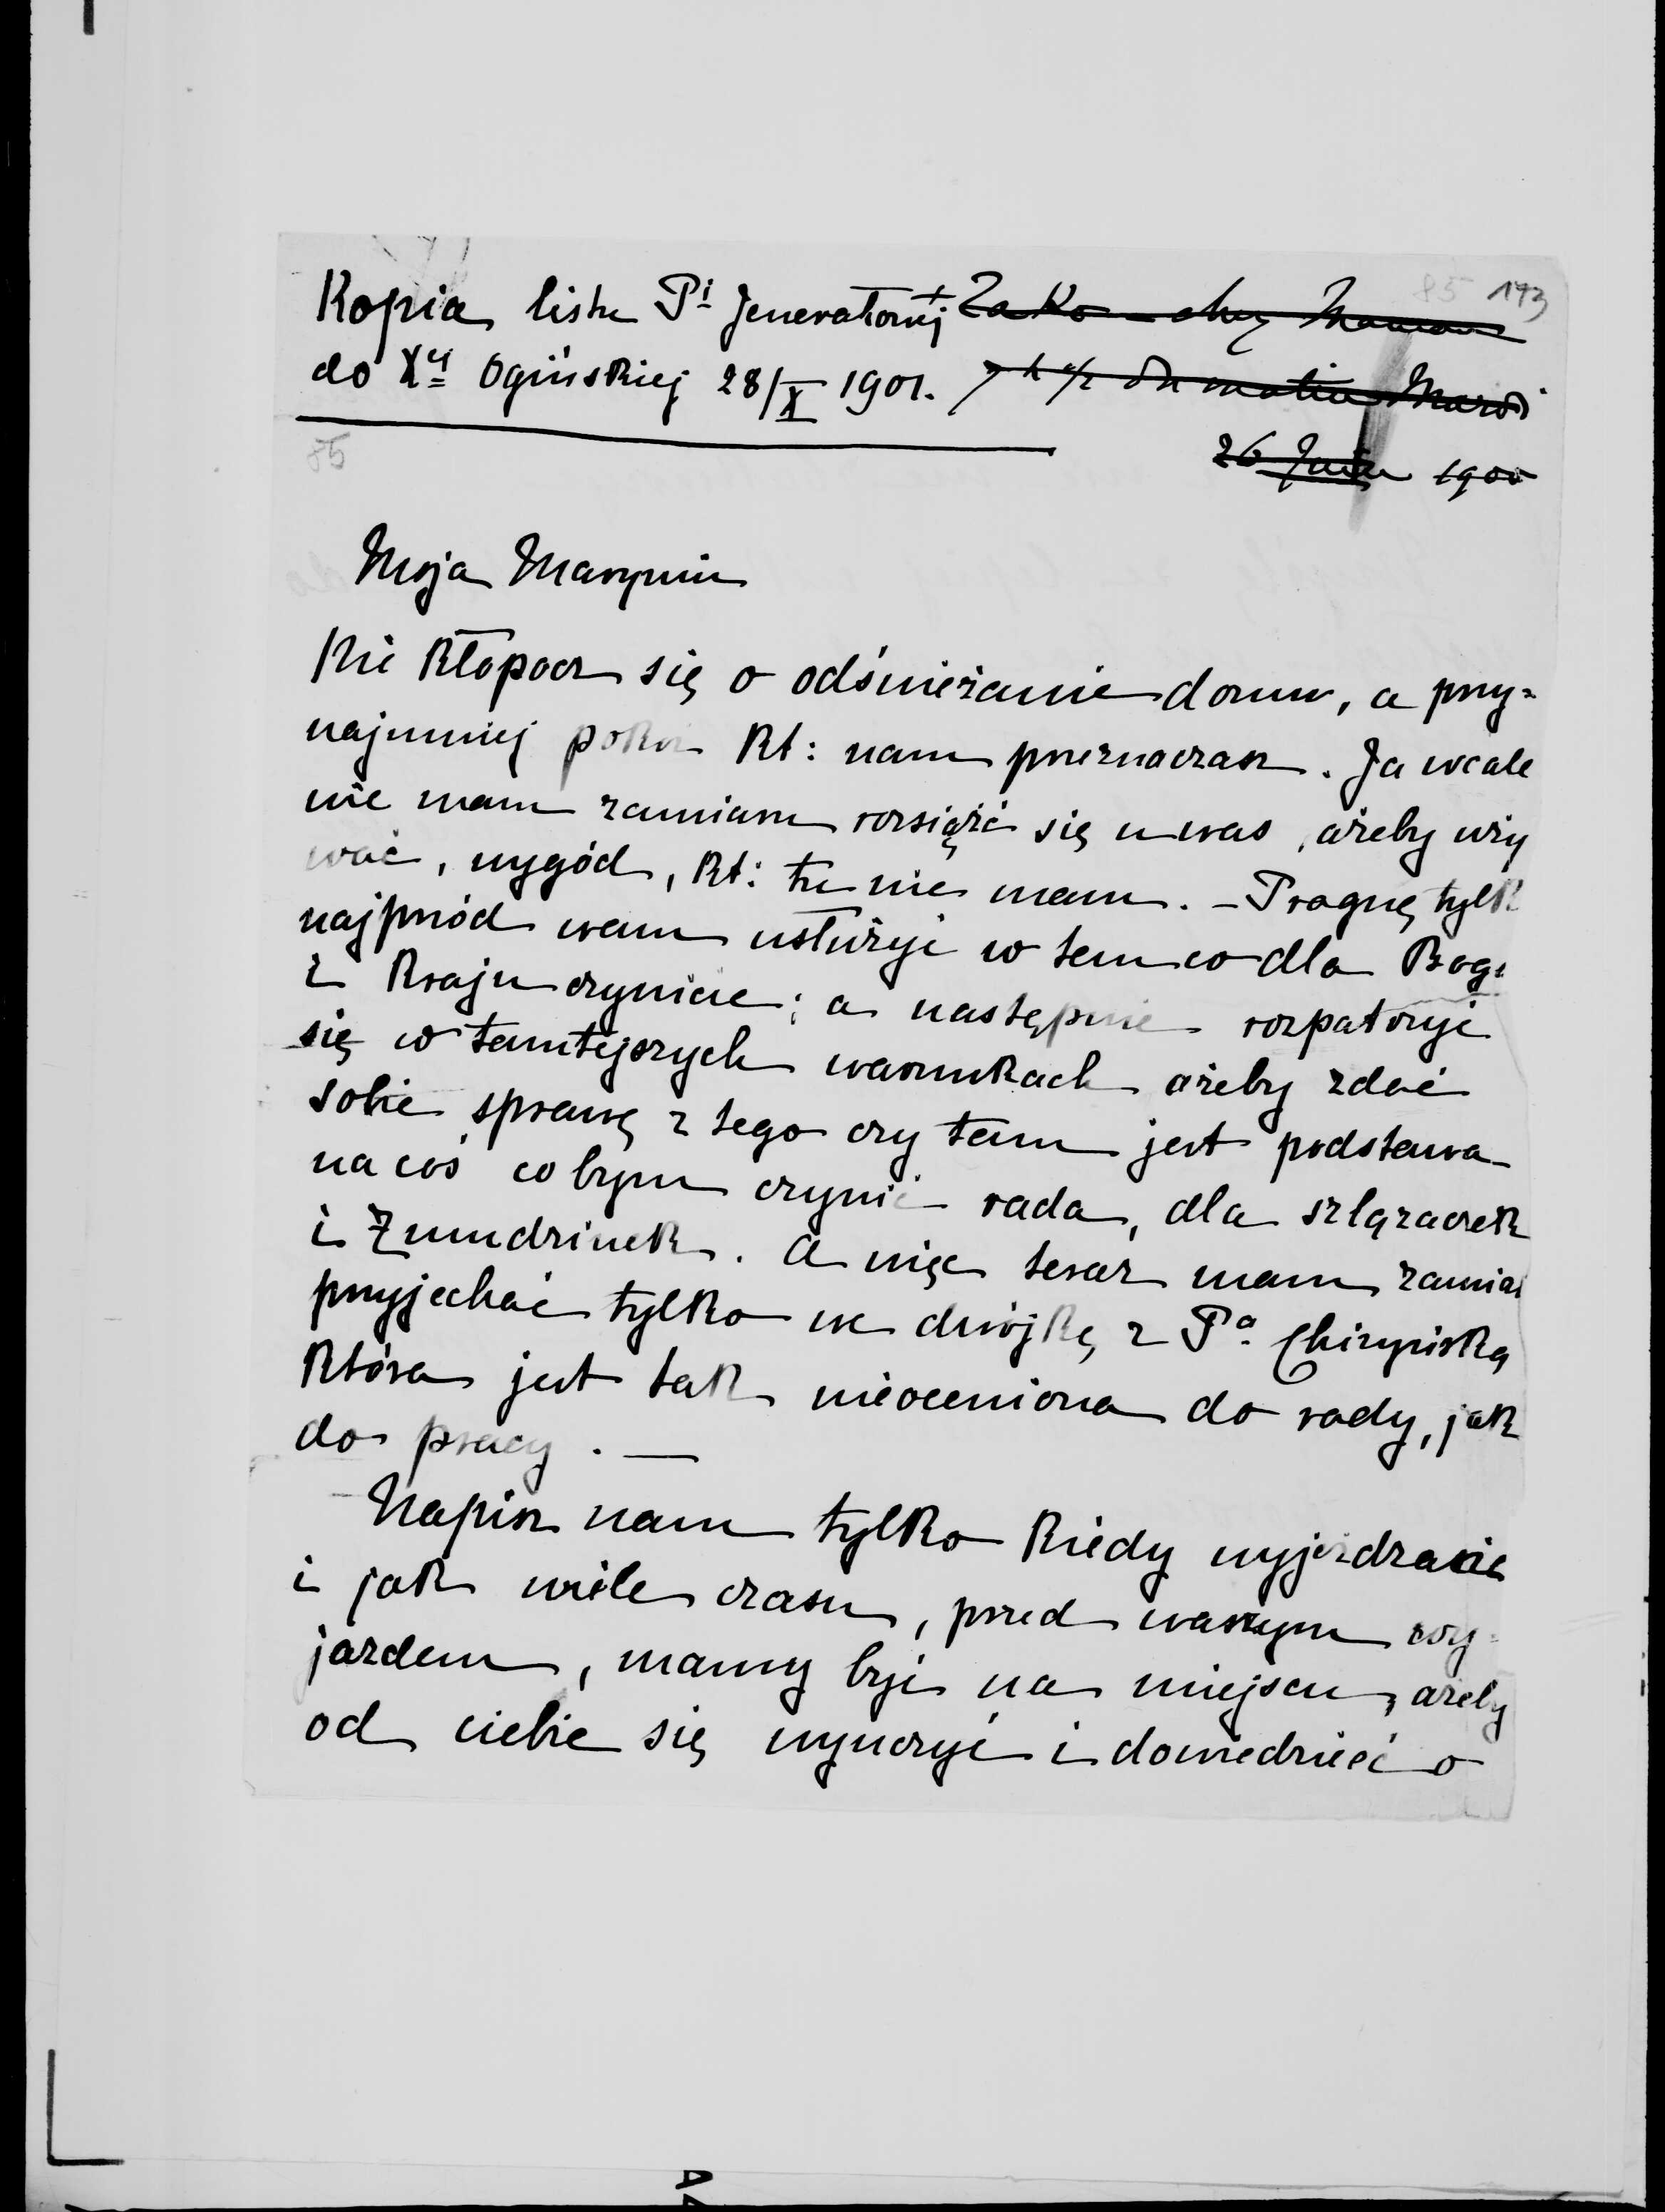 85 173
Kopia listu Pⁱ Jenerałowej Zako
do Xᵉʲ Ogińskiej 28/X 1901. 7 h ½ du matin Mardi
85
26 Juin 1900
Moja Maryniu
Nie kłopocz się o odświeżanie domu, a przy=
najmniej pokoi kt: nam przeznaczasz. Ja wcale
nie mam zamiaru rozsiąźć się u was, ażeby uży
wać, wygód, kt: tu nie mam. – Pragnę tylk
najprzód wam usłużyć w tem co dla Boga
i kraju czynicie; a następnie rozpatrzyć
się w tamtejszych warunkach ażeby zdać
sobie sprawę z tego czy tam jest podstawa
na coś co bym czynić rada, dla szlązaczek
i Żmudzinek. A więc teraz mam zamiar
przyjechać tylko we dwójkę z Pᵃ
która jest tak nieoceniona do rady, jak
do pracy. —
Napisz nam tylko kiedy wyjeżdżacie
i jak wiele czasu, przed waszym wy=
jazdem, mamy być na miejscu, ażeby
od ciebie się wyuczyć i dowiedzieć o